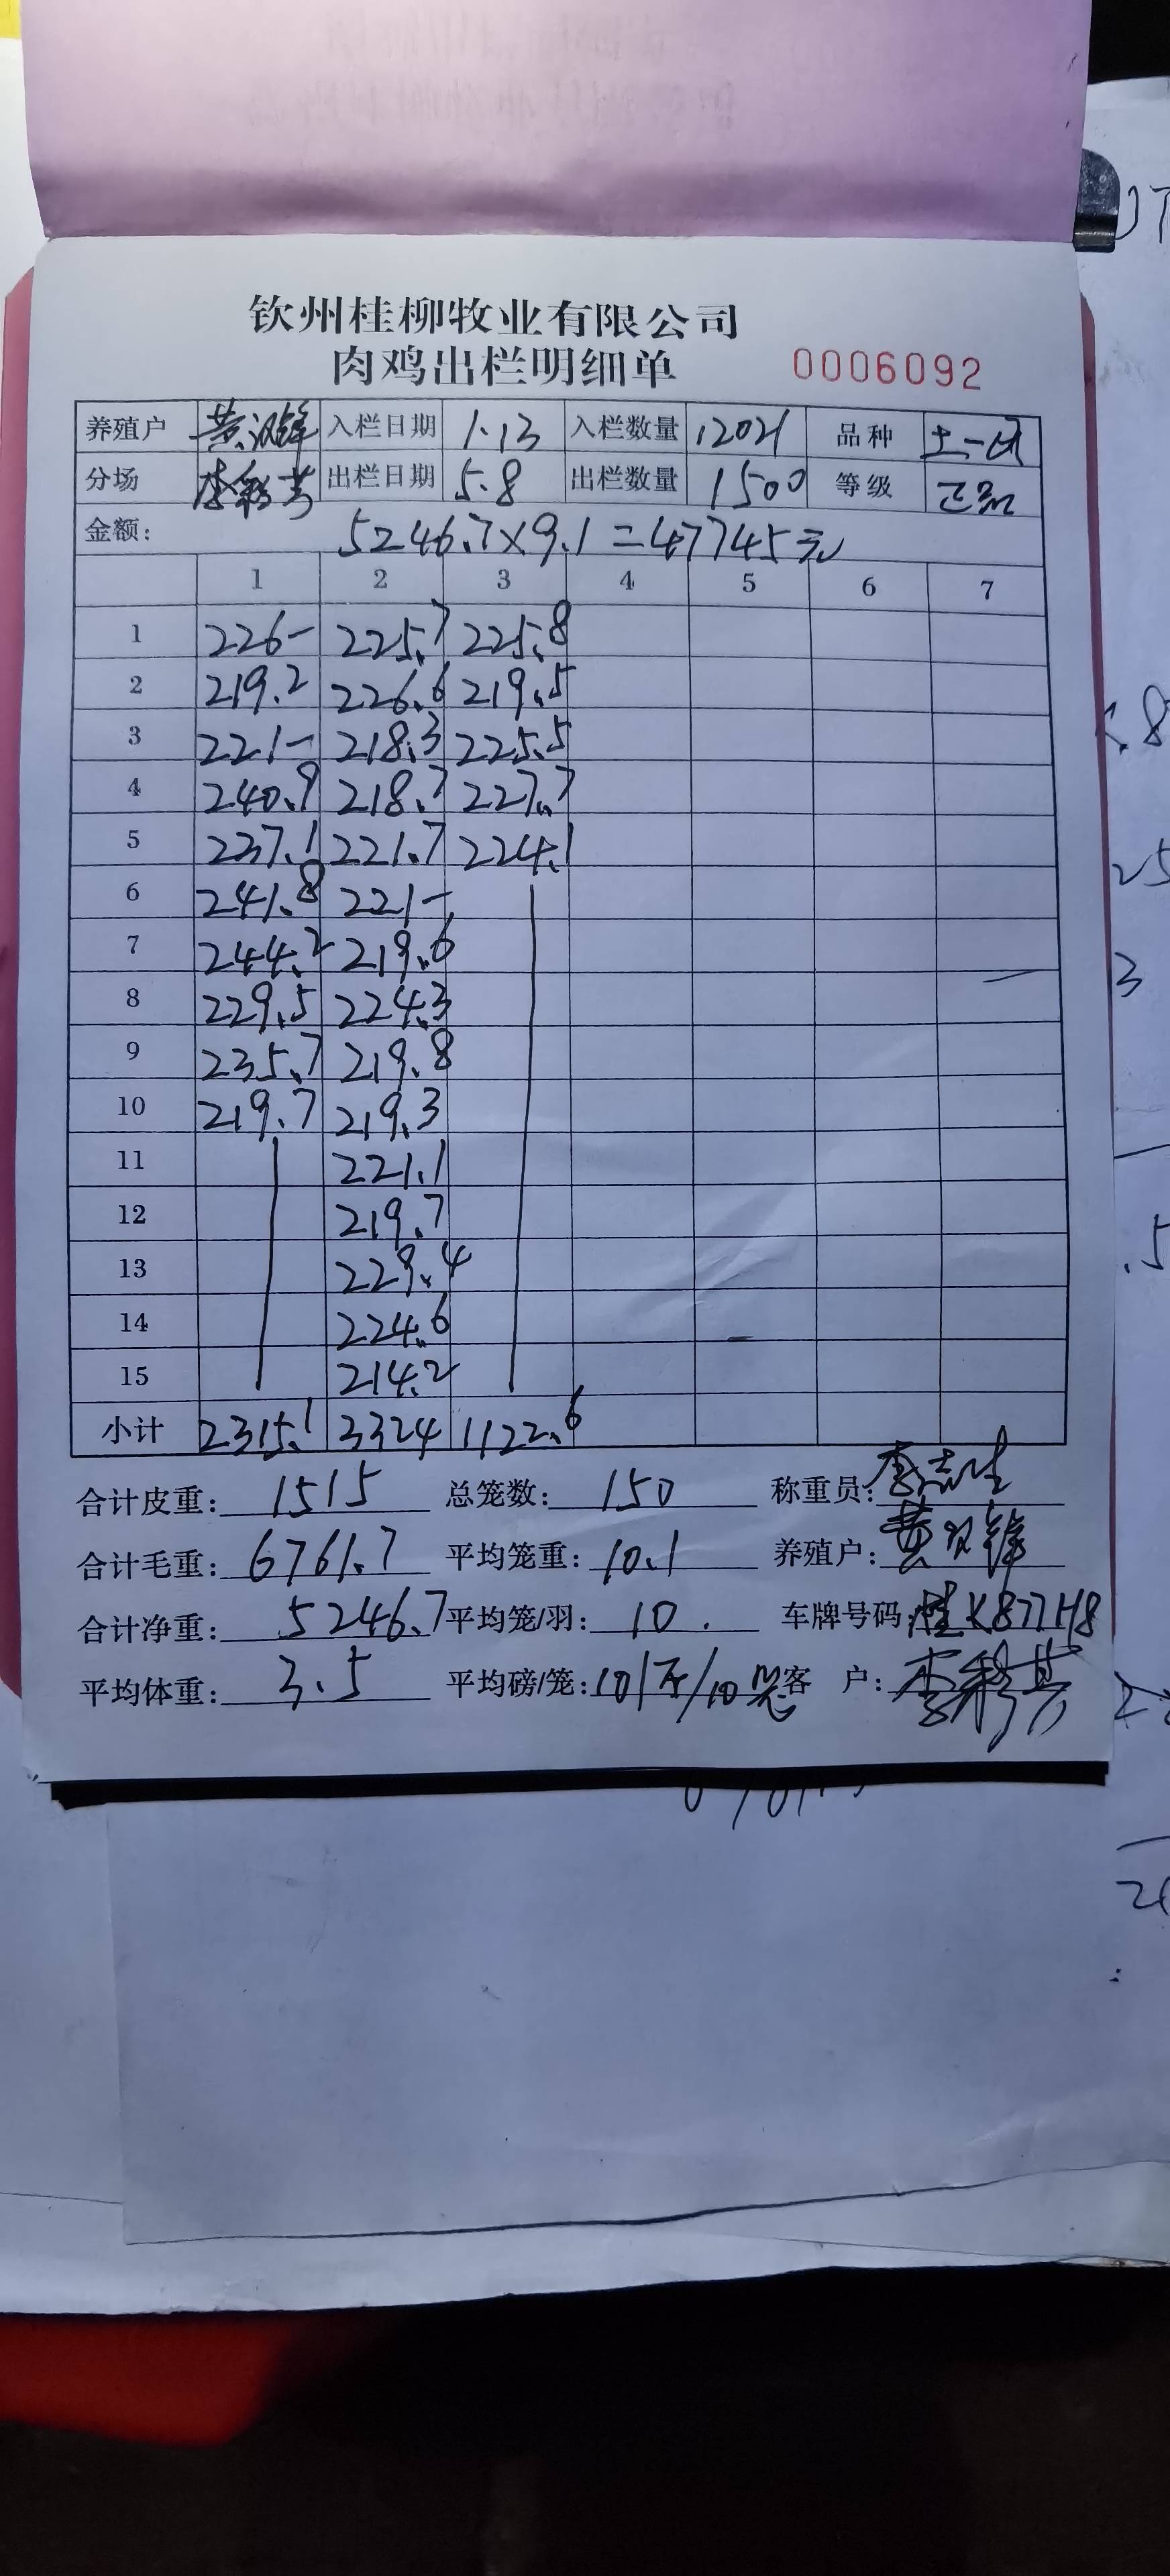 钦州桂柳牧业有限公司
肉鸡出栏明细单 0006092
养殖户 黄汉锋 入栏日期 1.13 入栏数量 12021 品种 土一
分场 李 出栏日期 5.8 出栏数量 1500 等级 正品
金额: 5246.7×9.1=47745元
1 2 3 4 5 6 7
1 226- 225.7 225.8
2 219.2 226.6 219.5
3 221- 218.3 225.5
4 240.9 218.7 227.7
5 237.1 221.7 224.1
6 241.8 221-
7 244.2 219.6
8 229.5 224.3
9 235.7 219.8
10 219.7 219.3
11 221.1
12 219.7
13 229.4
14 224.6
15 214.2
小计 2315.1 3324 1122.6
合计皮重: 1515 总笼数: 150 称重员: 李志生
合计毛重: 6761.7 平均笼重: 10.1 养殖户: 黄汉锋
合计净重: 5246.7 平均笼/羽: 10. 车牌号码: 桂K877H8
平均体重: 3.5 平均磅/笼: 101斤/10笼 客 户: 李